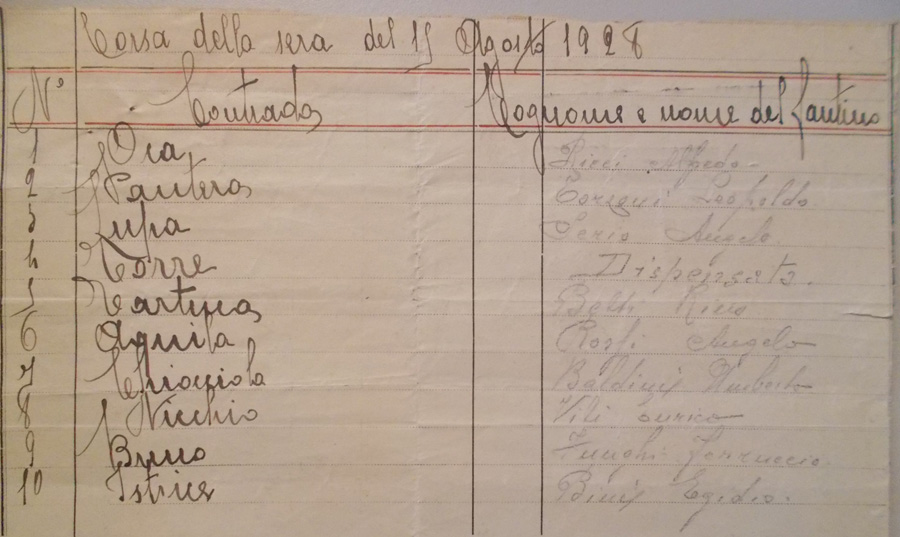 Corsa della sera del 15 Agosto 1928
N° Contrada Cognome e nome del fantino
1 Oca Ricci Alfredo
2 Pantera Corsini Leopoldo
3 Lupa Serio Angelo
4 Torre Dispensata.
5 Tartuca Betti Rino
6 Aquila Rossi Angelo
7 Chiocciola Baldini Umberto
8 Nicchio Viti Enrico
9 Bruco Funghi Ferruccio
10 Istrice Bini Egidio.